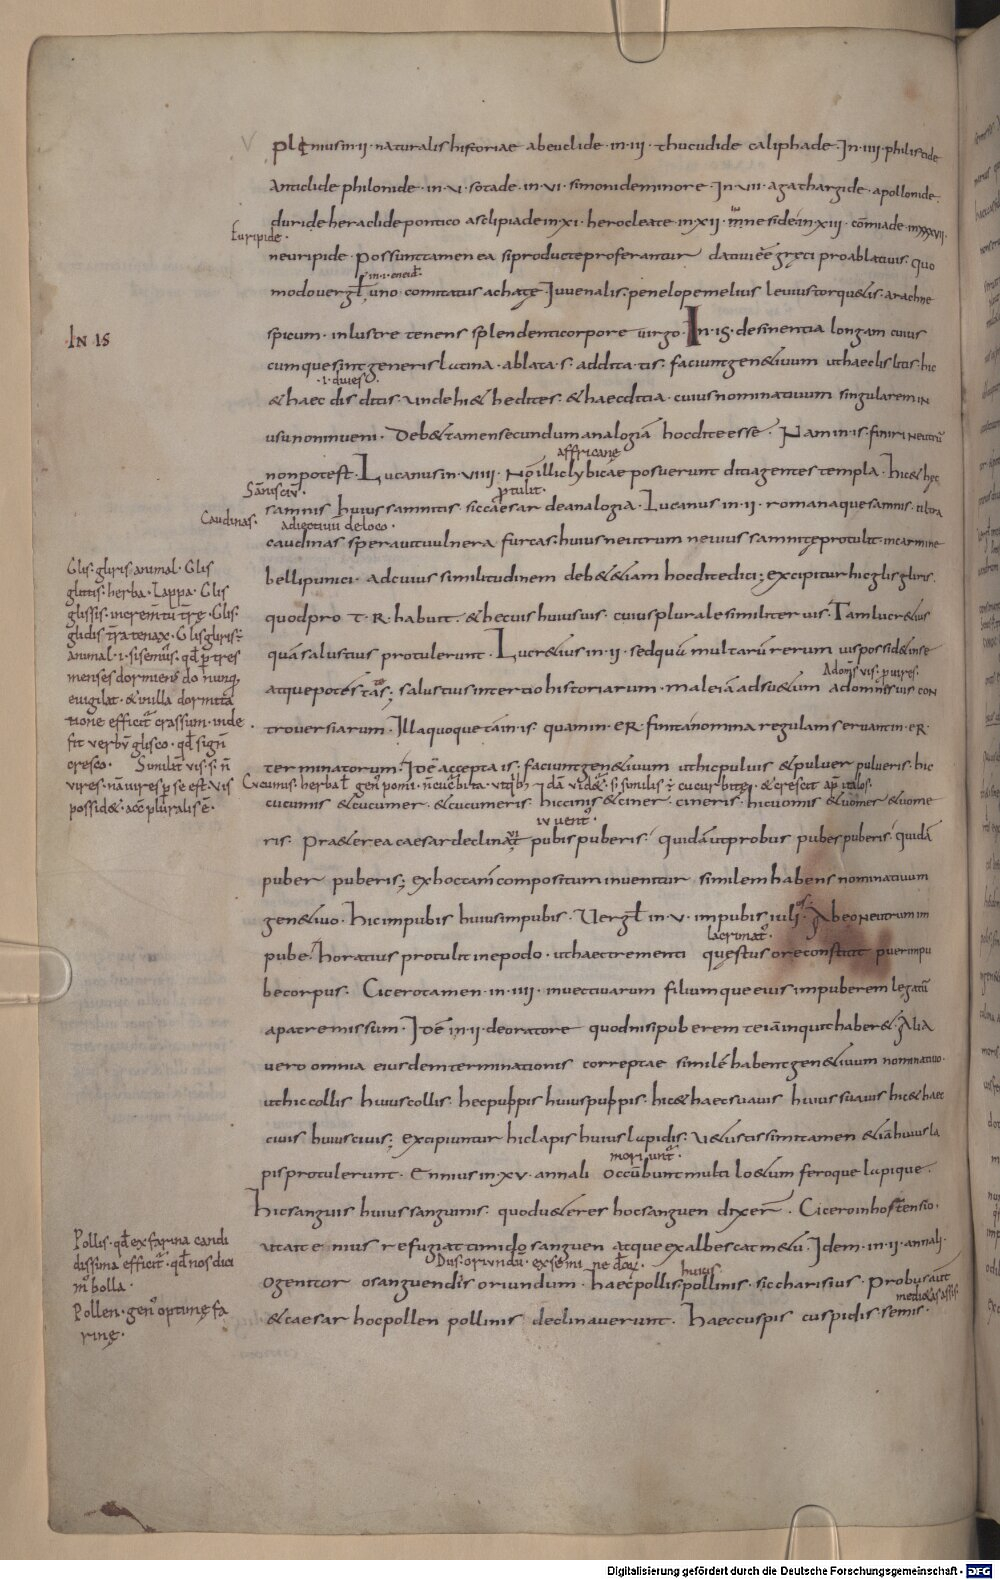 plinius in·II· naturalis historiae ab euclide· in·III· thucudide caliphade· In·IIII· philistide
Anticlide philonide· in·V· sotade· in·VI· simonide minore· In·VII· agathargide· apollonide·
duride heraclide pontico asclipiade in XI· herocleate in·XII· mneside in XIII· cōmiade in XXXVII·
Euripide·
neuripide· Possunt tamen ea si producte proferantur dativi eē gręci pro ablativis· quo
·in·I·eneid·
modo vergł· uno comitatus achatę Iuvenalis· penelope melius levius torquetis arachne
spicum· in lustre tenens splendenti corpore virgo· In·is· desinentia longam cuius
IN IS
cumque sint generis latina· ablata·s· addita·tis· faciunt genetivum ut haec lis litis· hic
·i· dives
& haec dis ditis· unde hi & he dites· & haec ditia· cuius nominativum singularem in
usu non inveni· Deb& tamen secundum analogiā hoc dite esse· Nam in·is· finiri neutrū
affricanę
non potest· Lucanus in·VIIII· Nō illic lybicae posuerunt ditia gentes templa· hic & hęc
ptulit·
samnis huius samnitis· sic caesar de analogia· Lucanus in·II· romanaque samnis· ultra
Caudinas· adiectivū de loco·
caudinas speravit vulnera furcas· huius neutrum nevius samnite protulit· in carmine
belli punici· Ad cuius similitudinem deb& &iam hoc dite dici; excipitur hic glis gliris·
quod pro T·R· habuit· & hec vis huius vis· cuius plurale similiter vis· Tam lucr&ius
quā salustius protulerunt· Lucr&ius in·II· sed quā multarū rerum vis possid& in se
Adom̄s vis· p̄ vires·
atque potestates; salustius in tertio historiarum· male iā adsu&um ad omnis vis con
troversiarum· Illa quoque tā in·is· quam in·ER· finita nomina regulam servant in·ER·
terminatorum· Idē accepta is· faciunt gen&ivum ut hic pulvis & pulver pulveris· hic
cucumis & cucumer· & cucumeris· hic cinis & ciner· cineris· hic vomis & vomer & vome
ris· Pr&erea caesar declinat pubis puberis· quidā ut probus pubes puberis· quidā
puber puberis; ex hoc tam̄ compositum invenitur similem habens nominativum
gen&ivo· hic impubis huius impubis· Vergł in·V· impubis iuli· Ab eo neutrum im
lacrimat·
pube· horatius protulit in epodo· ut haec trementi questus ore constitit puer impu
be corpus· Cicero tamen in·IIII· invectivarum filiumque eius impuberem legatū
a patre missum· Idē in·II· de oratore quod nisi puberem te iā inquit haber&· Alia
vero omnia eiusdem terminationis correptae similē habent gen&ivum nominativo·
ut hic collis huius collis· hec puppis huius puppis· hic & haec suavis huius suavis hic & haec
civis huius civis; excipiuntur hic lapis huius lapidis· v&ustissimi tamen &iā huius la
moriunt·
pis protulerunt· Ennius in·XV· annali occūbunt multi l&um feroque lapique·
hic sanguis huius sanguinis· quod v&eres hoc sanguen dixer· Cicero in hostensio·
ut ait enius refugiat timido sanguen atque exalbescat m&u· Idem in·II· annali·
o genitor o sanguen dis oriundum· haec pollis pollinis· sic charisius· Probus aut
& caesar hoc pollen pollinis declinaverunt· haec cuspis cuspidis· semis·
Glis· gliris· animal· Glis
glittis· herba· Lappa· Glis
glissis· incremtū trę· Glis·
glidis tra tenax· Glis gliris·
menses dormiens do nunq̄
evigilat· & nulla dormita
tione efficit crassum· inde
fit verbū glisco· qd sign̄
cresco· Similit vis·s·n̄
vires· nā vires p se est· vis
possid&· acc̄ pluralis ē·
Pollis· qd ex farina candi
dissima efficit· qd nos dici
m̄ bolla·
Pollen· gen optimę fa
rinę·
Digitalisierung gefördert durch die Deutsche Forschungsgemeinschaft - DFG